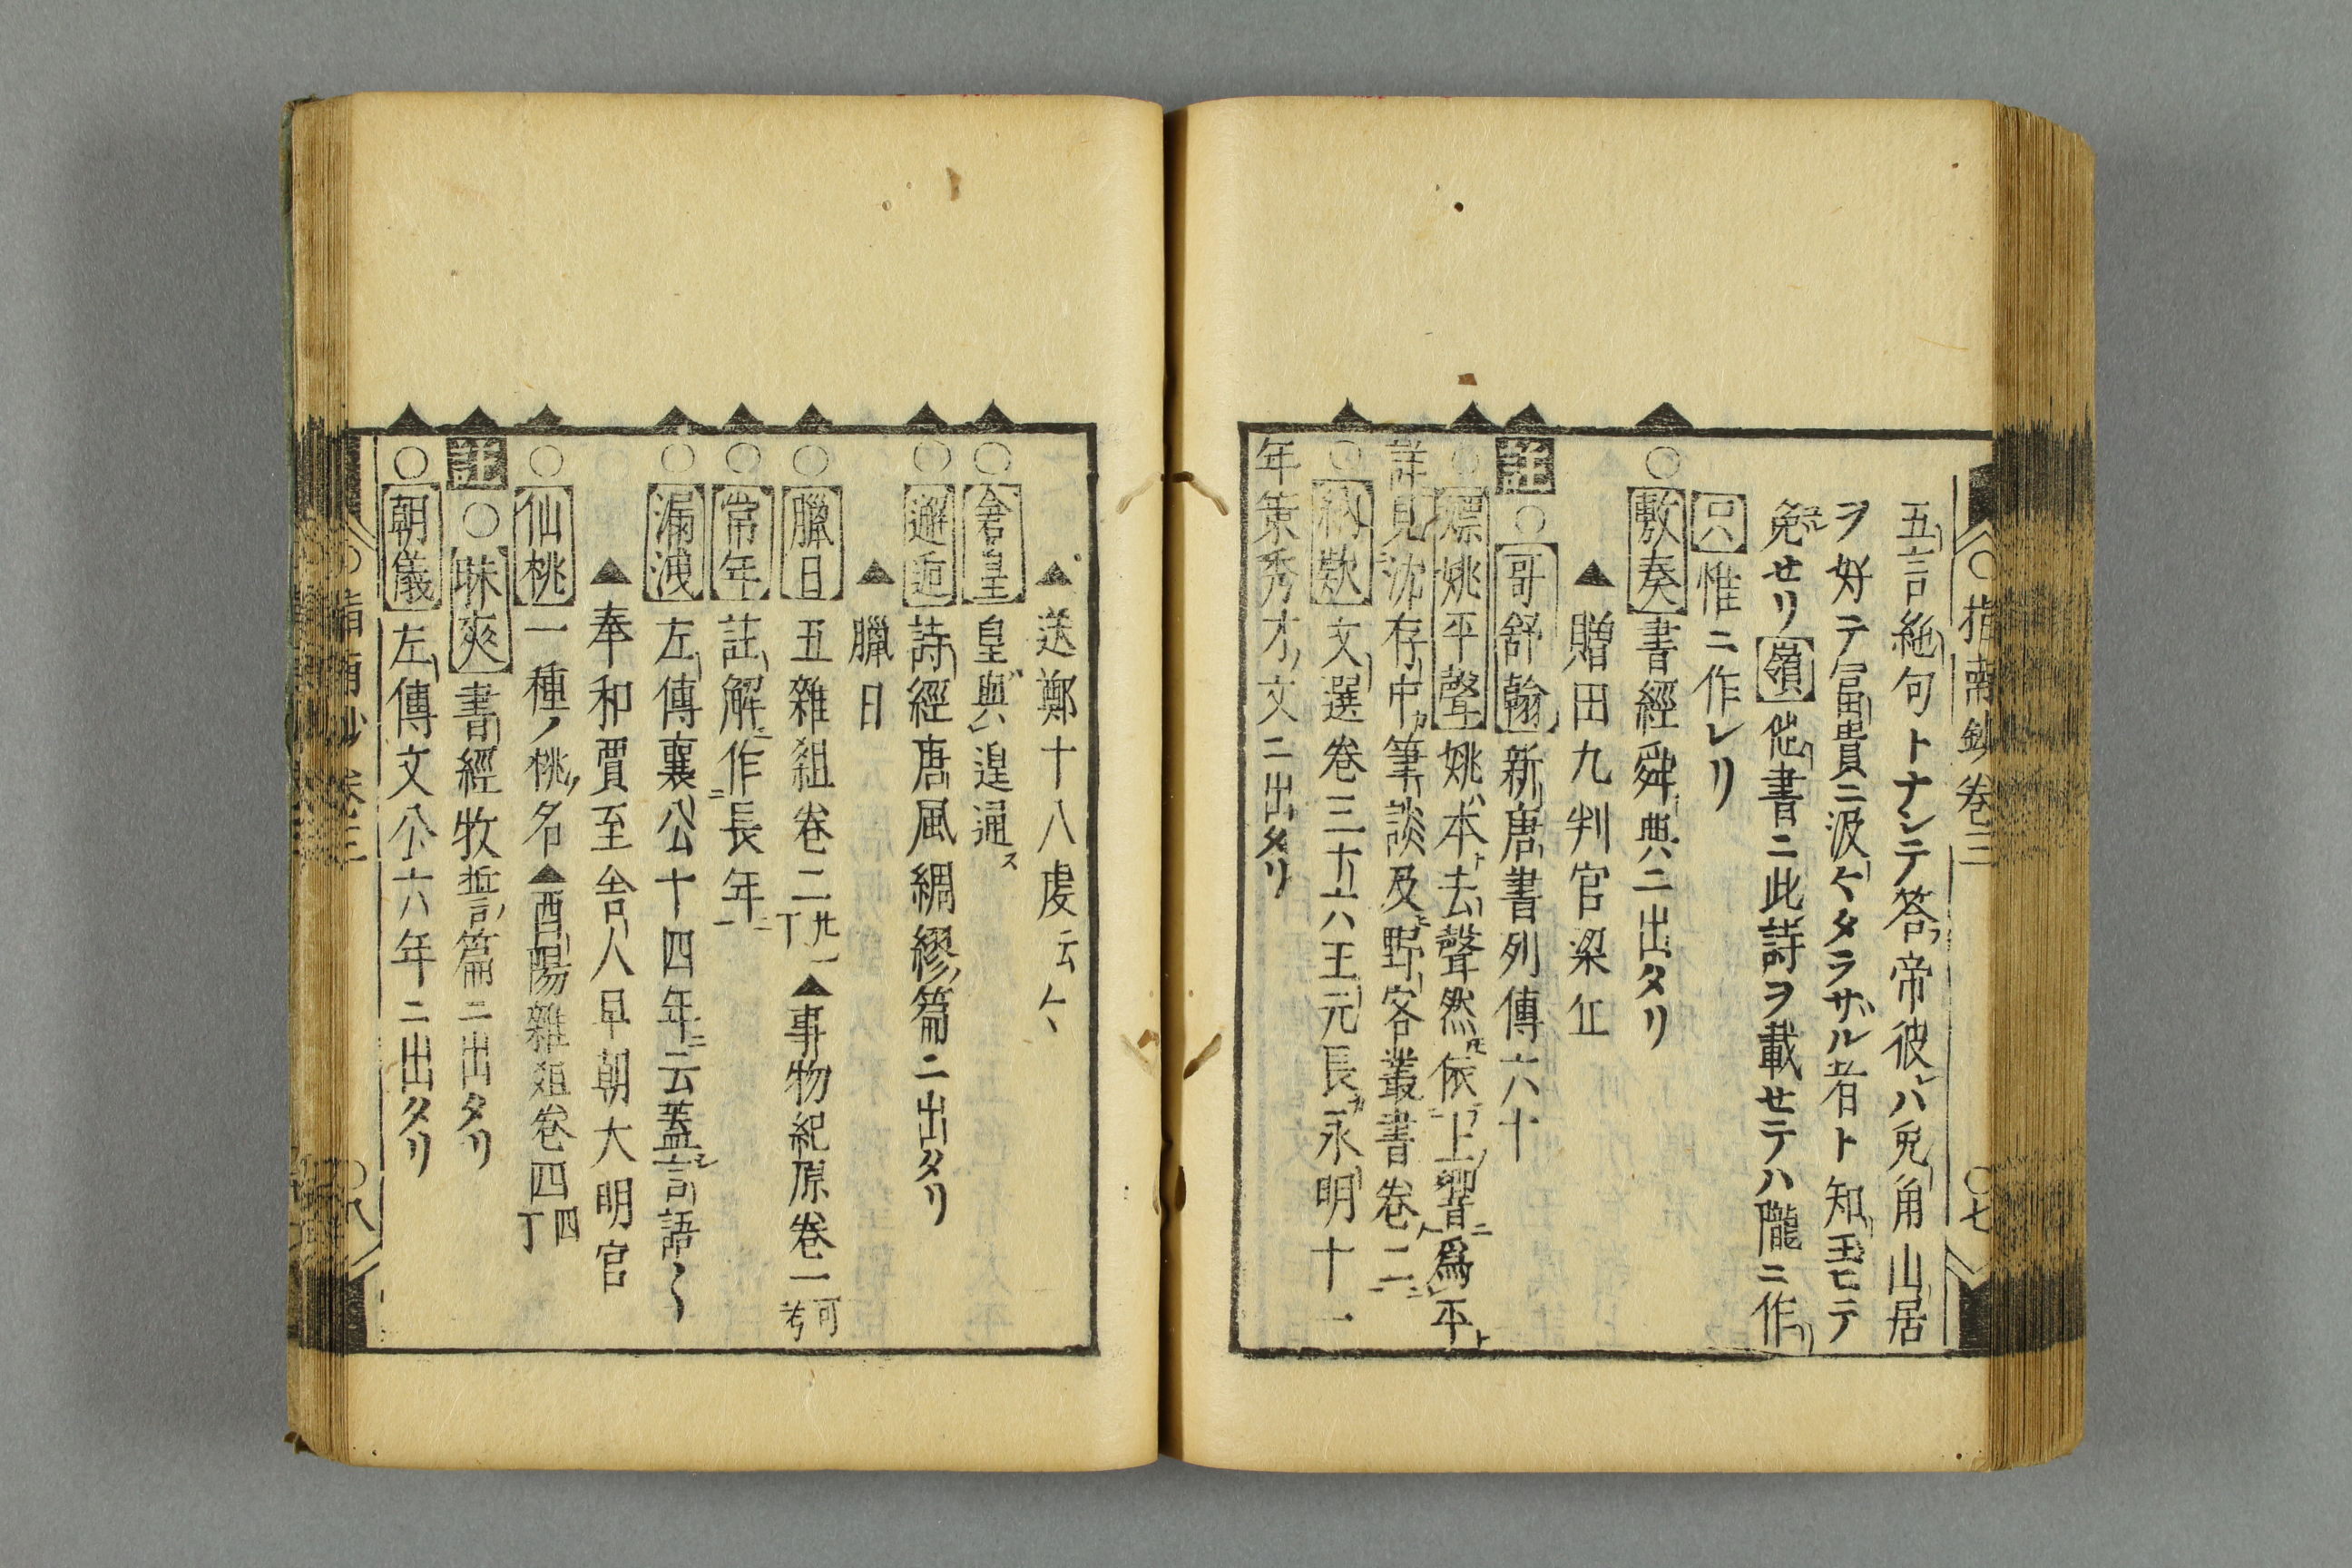 〇指南鈔卷三
〇七
五言絶句トナンテ答フ帝彼レハ兎角山居
ヲ好テ冨貴ニ汲々タラザル者ト知玉ヒテ
免セリ嶺他書ニ此詩ヲ載せテハ隴ニ作リ
只惟ニ作レリ
〇敷奏書經舜典ニ出タリ
▲贈田九判官梁丘
註〇哥舒翰新唐書列傳六十
〇嫖姚平聲姚本ト去聲然𪜈依上響ニ爲平ト
詳見沈存中カ筆談及ヒ野客叢書卷二ニ
〇納欵文選卷三十六王元長カ永明十一
年策秀才文ニ出タリ
▲送鄭十八虔云々
〇倉皇皇與遑通ス
〇邂逅詩經唐風綢繆篇ニ出タリ
▲臘日
〇臘日五雜爼卷二卅一丁▲事物紀原卷一可考
〇常年註解ニ作長年
〇漏洩左傳襄公十四年ニ云蓋シ言語〱
▲奉和賈至舎人早朝大明官
〇仙桃一種ノ桃ノ名▲酉陽雜爼卷四四丁
註〇昧爽書經牧誓篇ニ出タリ
〇朝儀左傳文公六年ニ出タリ